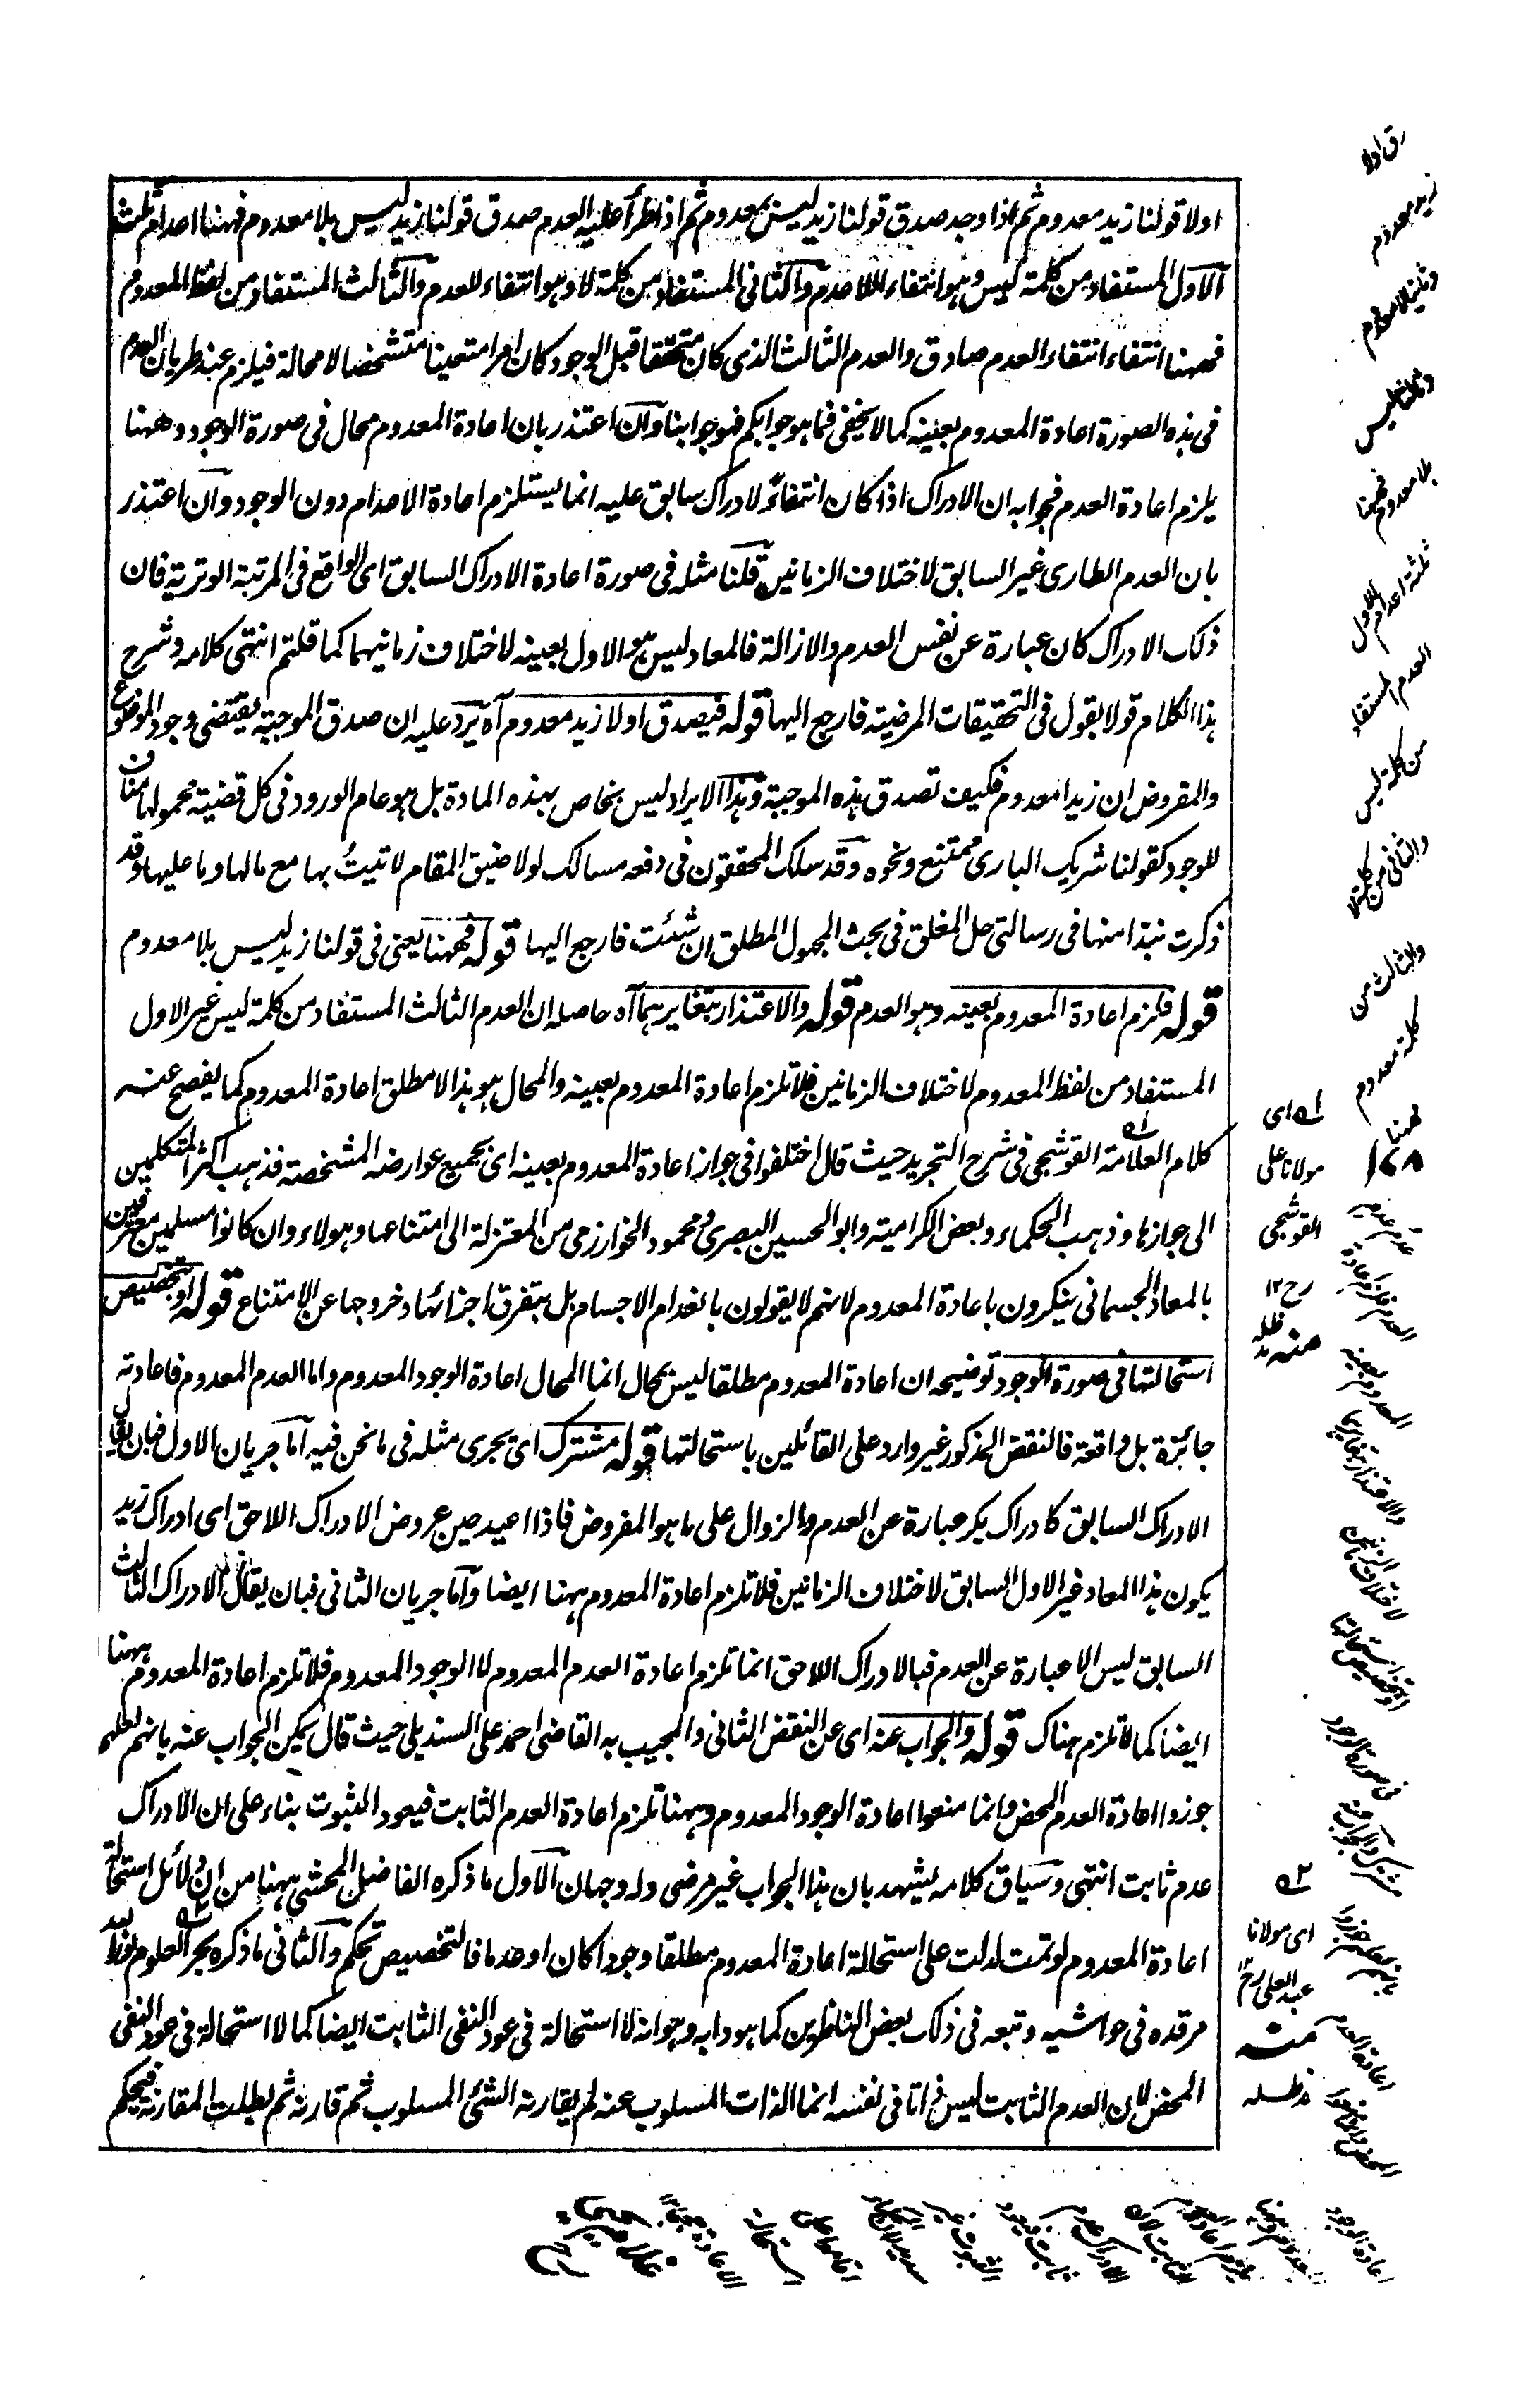 اولا قولنا زيد معدوم ثم اذا وجد صدق قولنا زيد ليس بمعدوم ثم اذا طرأ عليه العدم صدق قولنا زيد ليس بلا معدوم فههنا اعدام ثلثة
الاول المستفاد من كلمة ليس وهو انتفاء اللاعدم والثانى المستفاد من كلمة لا وهو انتفاء للعدم والثالث المستفاد من لفظ المعدوم
فههنا انتفاء انتفاء العدم صادق والعدم الثالث الذى كان متحققا قبل الوجود كان امرا متعينا متشخصا لا محالة فيلزم عند طريان العدم
فى هذه الصورة اعادة المعدوم بعينه كما لا يخفى فما هو جوابكم فهو جوابنا وان اعتذر بان اعادة المعدوم محال فى صورة الوجود وههنا
يلزم اعادة العدم فجوابه ان الادراك اذا كان انتفاءً لادراك سابق عليه انما يستلزم اعادة الاعدام دون الوجود وان اعتذر
بان العدم الطارى غير السابق لاختلاف الزمانين قلنا مثله فى صورة اعادة الادراك السابق اى الواقع فى المرتبة الوترية فان
ذلك الادراك كان عبارة عن نفس العدم والازالة فالمعاد ليس هو الاول بعينه لاختلاف زمانيهما كما قلتم انتهى كلامه وشرح
هذا الكلام قولا بقول فى التحقيقات المرضية فارجع اليها قوله فيصدق اولا زيد معدوم آه يرد عليه ان صدق الموجبة يقتضى وجود الموضوع
والمفروض ان زيدا معدوم فكيف تصدق هذه الموجبة وهذا الايراد ليس بخاص بهذه المادة بل هو عام الورود فى كل قضية محمولها مناف
للوجود كقولنا شريك البارى ممتنع ونحوه وقد سلك المحققون فى دفعه مسالك لولا ضيق المقام لاتيتُ بها مع مالها وما عليها وقد
ذكرت نبذا منها فى رسالتى حل المغلق فى بحث المجهول المطلق ان شئت فارجع اليها قوله فههنا يعنى فى قولنا زيد ليس بلا معدوم
قوله فلزم اعادة المعدوم بعينه وهو العدم قوله والاعتذار بتغايرهما آه حاصله ان العدم الثالث المستفاد من كلمة ليس غير الاول
المستفاد من لفظ المعدوم لاختلاف الزمانين فلا تلزم اعادة المعدوم بعينه والمحال هو هذا لا مطلق اعادة المعدوم كما يفصح عنه
كلام العلامة القوشجى فى شرح التجريد حيث قال اختلفوا فى جواز اعادة المعدوم بعينه اى بجميع عوارضه المشخصة فذهب اكثر المتكلمين
الى جوازها وذهب الحكماء وبعض الكرامية وابو الحسين البصرى ومحمود الخوارزمى من المعتزلة الى امتناعها وهولاء وان كانوا مسلمين معترفين
بالمعاد الجسمانى ينكرون باعادة المعدوم لانهم لا يقولون بانعدام الاجسام بل بتفرق اجزائها وخروجها عن الامتناع قوله او تخصيص
استحالتها فى صورة الوجود توضيحه ان اعادة المعدوم مطلقا ليس بمحال انما المحال اعادة الوجود المعدوم واما العدم المعدوم فاعادته
جائزة بل واقعة فالنقض المذكور غير وارد على القائلين باستحالتها قوله مشترك اى يجرى مثله فى ما نحن فيه اما جريان الاول فبان يقال
الادراك السابق كادراك بكر عبارة عن العدم والزوال على ما هو المفروض فاذا اعيد حين عروض الادراك اللاحق اى ادراك زيد
يكون هذا المعاد غير الاول السابق لاختلاف الزمانين فلا تلزم اعادة المعدوم ههنا ايضا واما جريان الثانى فبان يقال الادراك الثالث
السابق ليس الا عبارة عن العدم فبالادراك اللاحق انما تلزم اعادة العدم المعدوم لا الوجود المعدوم فلا تلزم اعادة المعدوم ههنا
ايضا كما لا تلزم هناك قوله والجواب عنه اى عن النقض الثانى والمجيب به القاضى احمد على السنديلى حيث قال يمكن الجواب عنه بانهم لعلهم
جوزوا اعادة العدم المحض وانما منعوا اعادة الوجود المعدوم وههنا تلزم اعادة العدم الثابت فيعود الثبوت بناء على ان الادراك
عدم ثابت انتهى وسياق كلامه يشهد بان هذا الجواب غير مرضى وله وجهان الاول ما ذكره الفاضل المحشى ههنا من ان دلائل استحالة
اعادة المعدوم لو تمت لدلت على استحالة اعادة المعدوم مطلقا وجودا كان او عدما فالتخصيص تحكم والثانى ما ذكره بحر العلوم نور الله
مرقده فى حواشيه وتبعه فى ذلك بعض الناظرين كما هو دابه وهو انه لا استحالة فى عود النفى الثابت ايضا كما لا استحالة فى عود النفى
المحض لان العدم الثابت ليس ذاتا فى نفسه انما الذات المسلوب عنه لم يقارنه الشئ المسلوب ثم قارنه ثم بطلت المقارنة فيحكم
زيد معدوم
وثالثا ليس
بلا معدوم فههنا
ثلثة اعدام الاول
العدم المستفاد
من كلمة ليس
والثانى من كلمة لا
والثالث من
كلمة معدوم
ههنا
١٦٨
له اى
مولانا على
القوشجى
رح ١٢
منه مد ظله
المعدوم بعينه
والاعتذار بتغايرهما
لاختلاف الزمانين
او تخصيص استحالتها
فى صورة الوجود
مشترك والجواب عنه
٢ه
اى مولانا
عبد العلى رح
منه
مد ظله
بانهم لعلهم جوزوا
اعادة العدم
اعادة الوجود